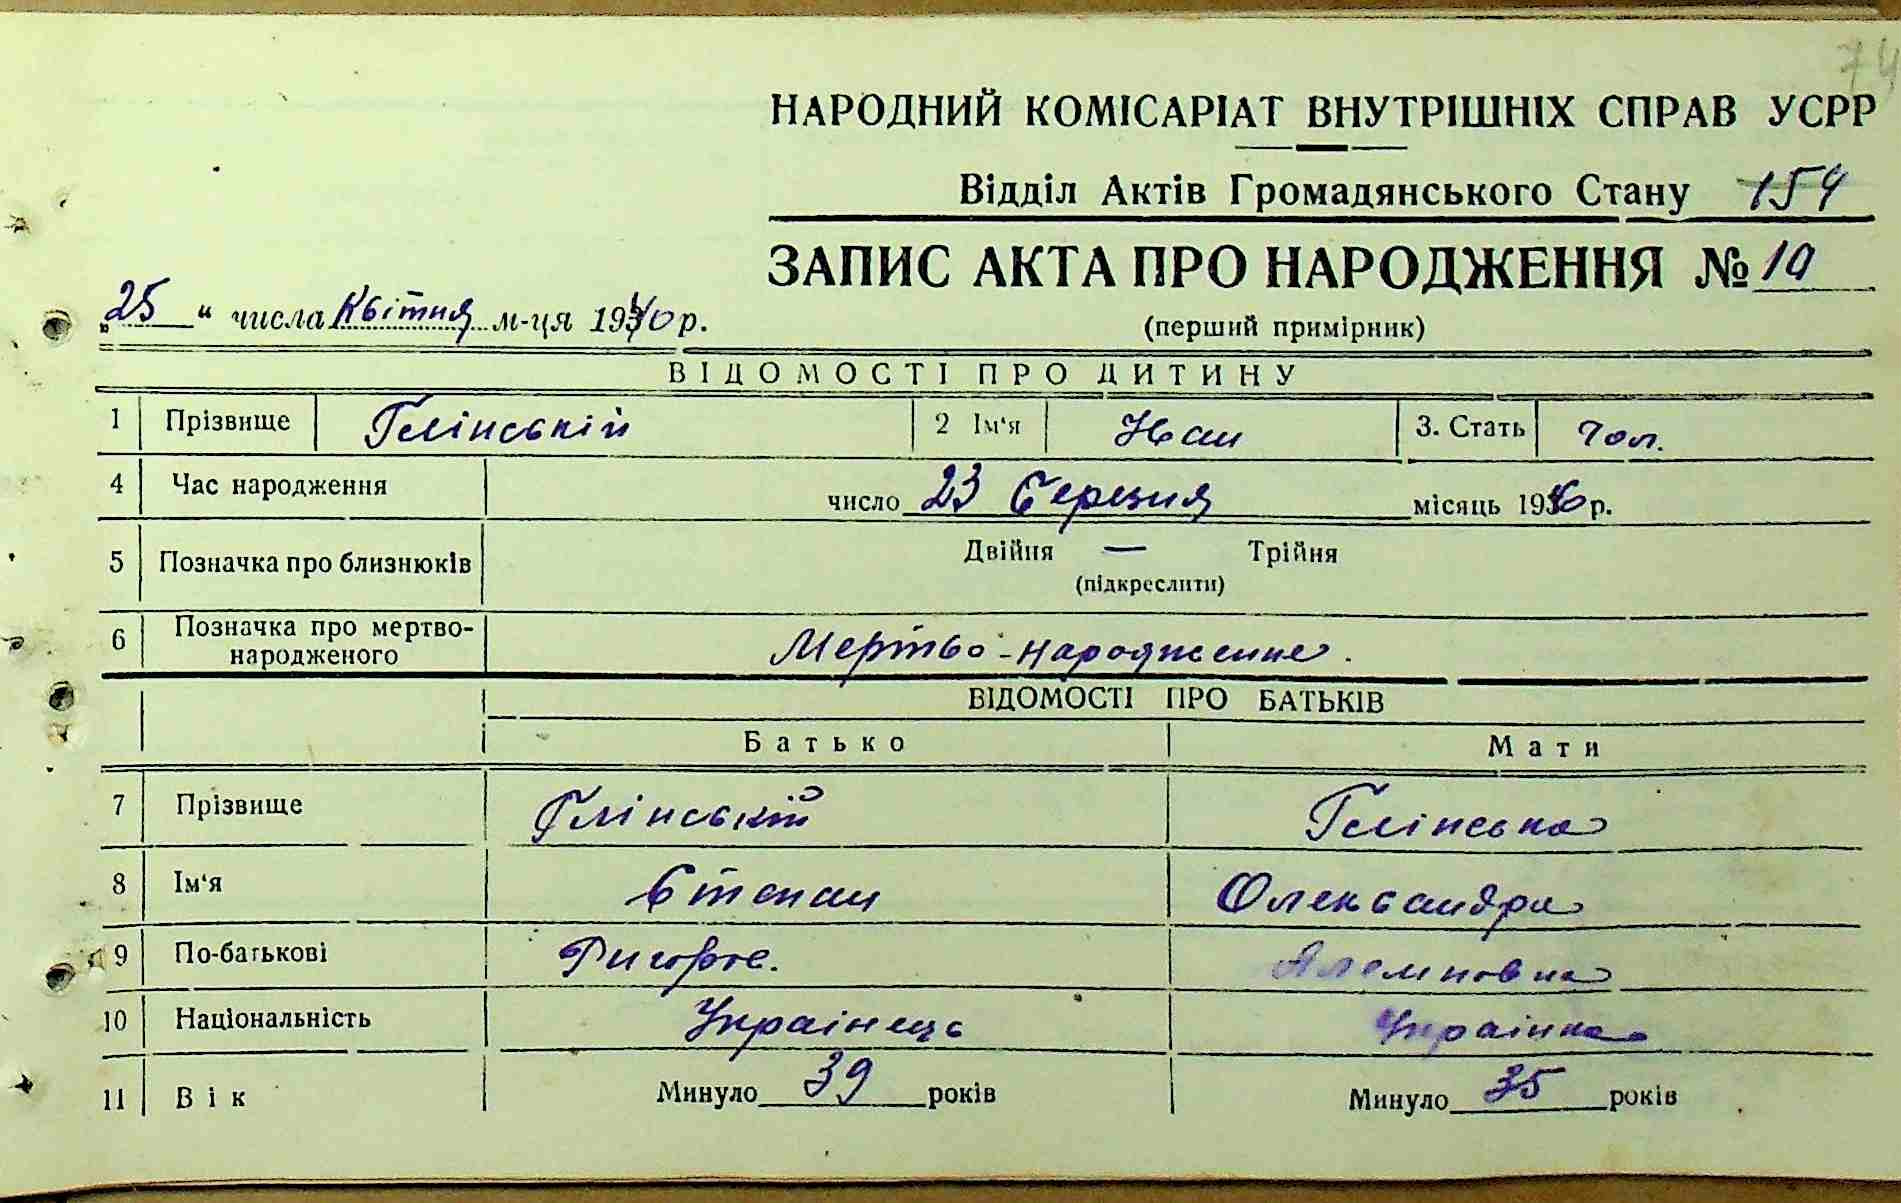 74
НАРОДНИЙ КОМІСАРІАТ ВНУТРІШНІХ СПРАВ УСРР
Відділ Актів Громадянського Стану 154
ЗАПИС АКТА ПРО НАРОДЖЕННЯ № 10
„25“ числа Квітня м-ця 1940 р.
(перший примірник)
ВІДОМОСТІ ПРО ДИТИНУ
1 Прізвище Глінській 2 Ім'я 3. Стать чол.
4 Час народження число 23 березня місяць 1940 р.
5 Позначка про близнюків Двійня — Трійня
(підкреслити)
6 Позначка про мертво-
народженого Мертво-народженне.
ВІДОМОСТІ ПРО БАТЬКІВ
Батько Мати
7 Прізвище Глінській Глінська
8 Ім'я Степан Олександра
9 По-батькові
10 Національність Українець Українка
11 Вік Минуло 39 років Минуло 35 років